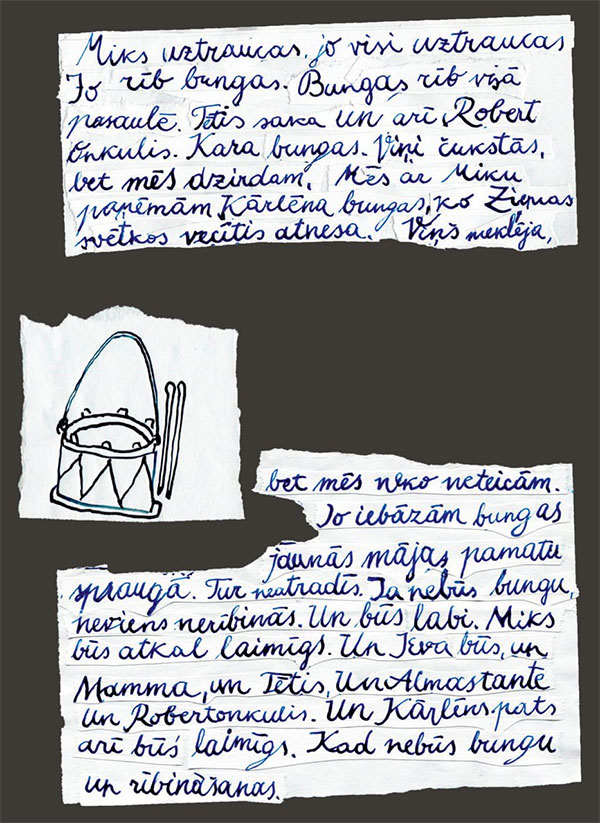 Miks uztraucas, jo visi uztraucas
Jo rīb bungas. Bungas rīb visā
pasaulē. Tētis saka Un arī Robert
onkulis. Kara bungas. Viņi čukstās,
bet mēs dzirdam. Mēs ar Miku
paņēmām Kārlēna bungas, ko Ziemas
svētkos vecītis atnesa. Viņš meklēja,
bet mēs neko neteicām.
Jo iebāzām bungas
jaunās mājas pamatu
spraugā. Tur neatradīs. Ja nebūs bungu,
neviens neribinās. Un būs labi. Miks
būs atkal laimīgs. Un Ieva būs, un
Mamma, un Tētis, Un Almastante
un Robertonkulis. Un Kārlēns pats
arī būs laimīgs. Kad nebūs bungu
un rībināšanas.